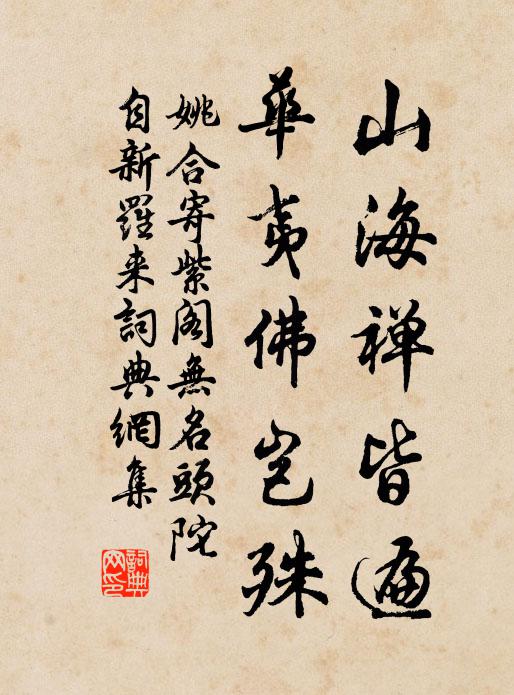 山海禅皆遍
華夷佛岂殊
姚合寄紫阁無名頭陀
自新羅来詞典網集
詞典网印